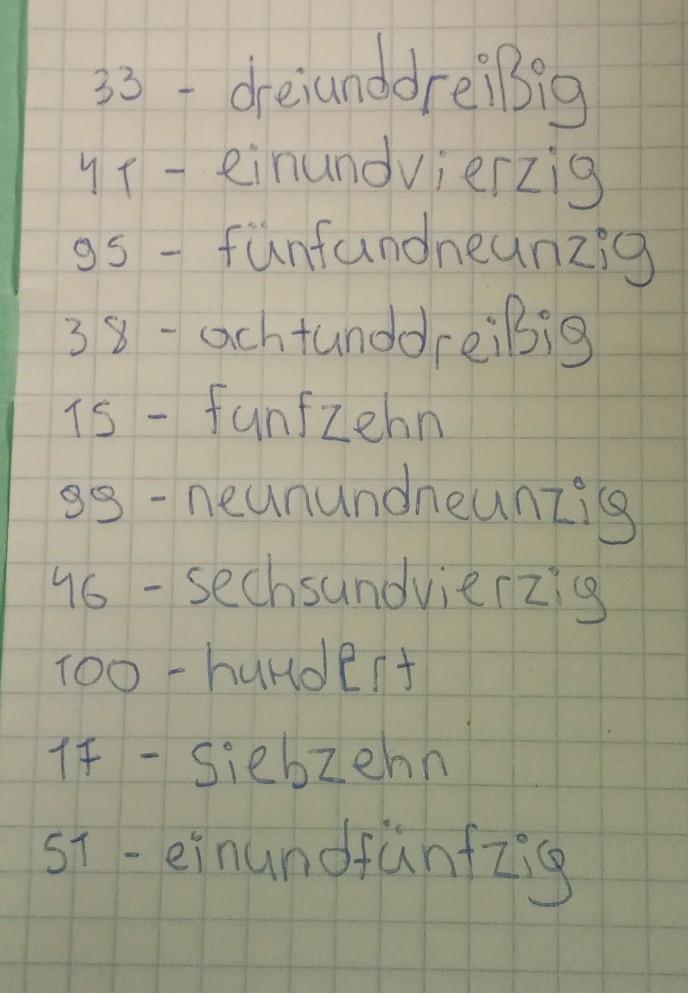 33 - dreiunddreißig
41 - einundvierzig
95 - fünfundneunzig
38 - achtunddreißig
15 - funfzehn
99 - neunundneunzig
46 - sechsundvierzig
100 - hundert
17 - siebzehn
51 - einundfünfzig